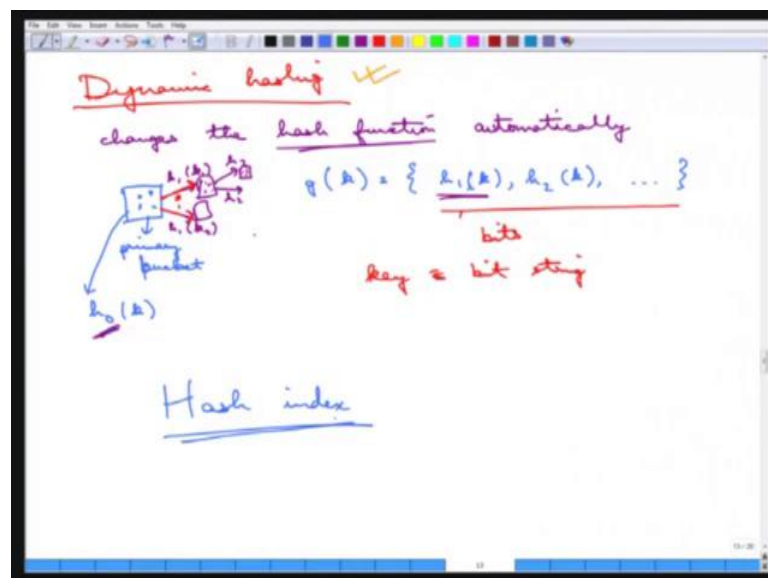 File Edit View Insert Actions Tools Help
Dynamic hashing
changes the hash function automatically
g(k) = { h₁(k), h₂(k), ... }
h₁(k)
h₂
h₂
h₁(k)
primary
bucket
bits
key ≈ bit string
h₀(k)
Hash index
13 / 20
13